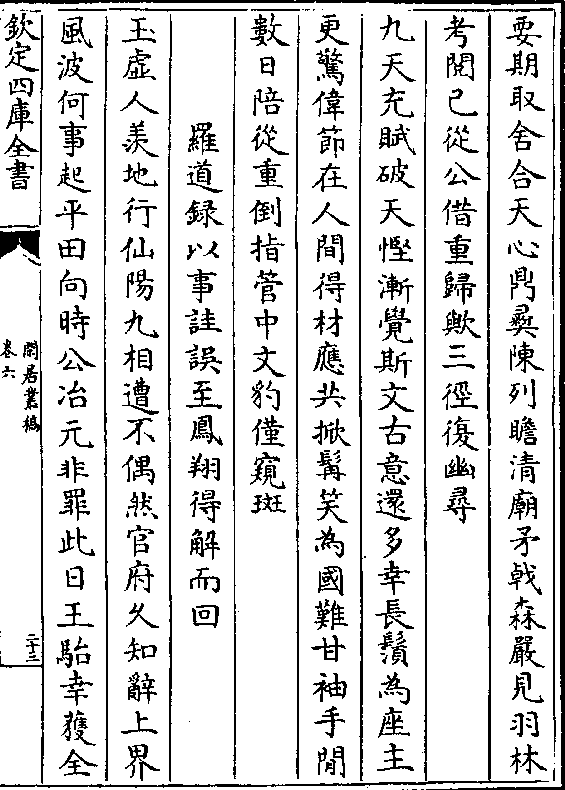 要期取舍合天心鼎彛陳列瞻清廟矛戟森嚴見羽林
考閲已從公借重歸歟三徑復幽尋
九天充賦破天慳漸覺斯文古意還多幸長鬚為座主
更驚偉節在人間得材應共掀髯笑為國難甘袖手閒
數日陪從重倒指管中文豹僅窺斑
羅道録以事詿誤至鳳翔得解而回
玉虚人羡地行仙陽九相遭不偶然官府久知辭上界
風波何事起平田向時公冶元非罪此日王駘幸獲全
欽定四庫全書
閒居叢稿
卷六
二十三